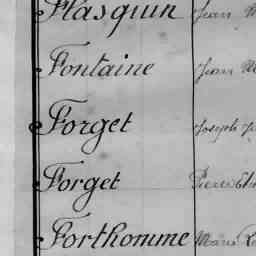 Flasquin Jean
Fontaine Jean
Forget Joseph
Forget Pierre
Forthomme Marie